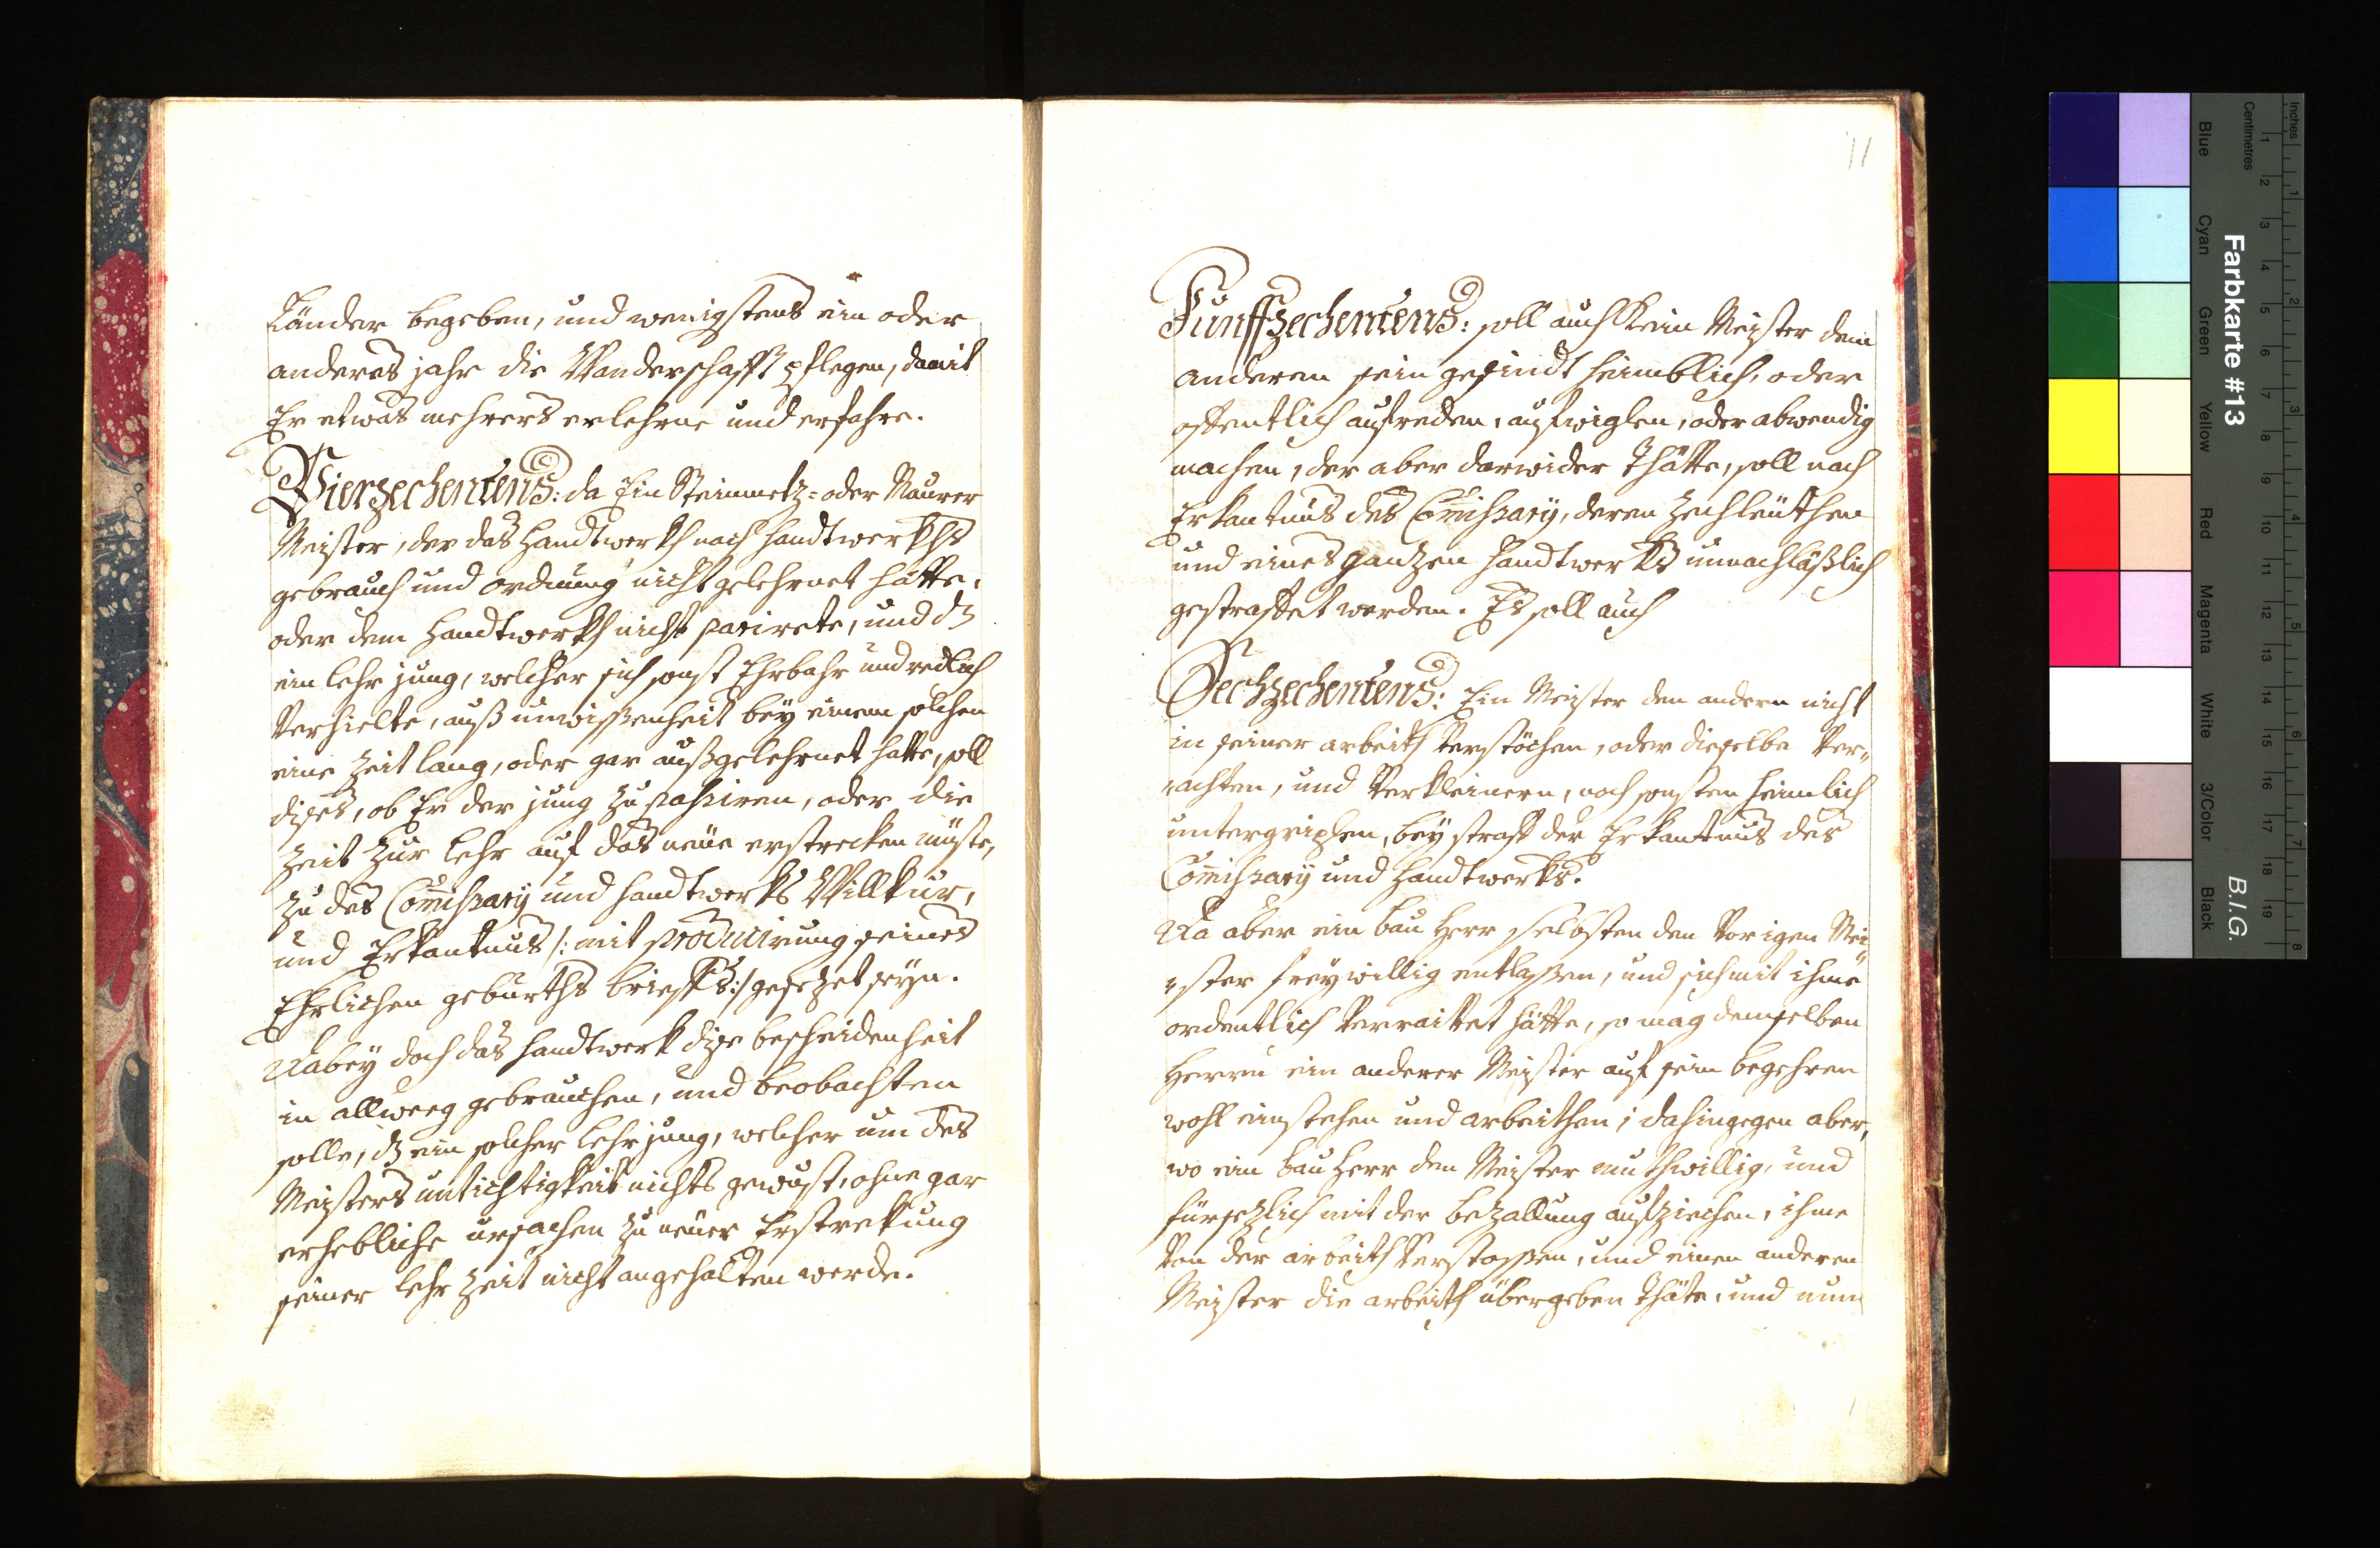 Länder begeben, und wenigstens ein oder
anderes jahr die Wanderschafft pflegen, damit
Er etwas mehrers erlehrne und erfahre.
Vierzechentens: da Ein Steinmetz- oder Maurer
Meister, der das Handtwerkh nach handtwerkhs
gebrauch und ordnung nicht gelehrnet hätte,
oder dem Handtwerkh nicht parirete, und dz
ein lehr jung, welcher sich sonst Ehrbahr und redlich
Verhielte, auß unwissenheit bey einem solchen
eine Zeit lang, oder gar außgelehrnet hatte, soll
dises, ob Er der jung zu passiren, oder die
Zeit zur lehr auf das neüe erstrecken müste,
zu des Com̄issary und handtwerks Willkur,
und Erkantnus /: mit producirung seines
Ehrlichen geburths brieffs :/ gesezet seyn.
Dabey doch das handtwerk dise bescheidenheit
in allweeg gebrauchen, und beobachten
solle, dz ein solcher lehrjung, welcher um des
Meisters untichtigkeit nichts gewust, ohne gar
erhebliche ursachen zu neüer Erstrekung
seiner lehr Zeit nicht angehalten werde.
11
Fünffzechentens: soll auch kein Meister dem
anderen sein gesindt heimblich, oder
offentlich aufreden, aufwiglen, oder abwendig
machen, der aber darwider thätte, soll nach
Erkantnus des Com̄issary, deren Zechleüthen
und eines gantzen Handtwerks unnachläßlich
gestraffet werden. Es soll auch
Sechzechentens: Ein Meister den andern nicht
in seiner arbeith Verstöchen, oder dieselbe Ver„
„achten, und Verkleinern, noch sonsten heimlich
untergriffen, bey straff der Erkantnus des
Com̄issary und Handtwerks.
Da aber ein bau Herr selbsten den Vorigen Mei
„ster freywillig entlassen, und sich mit ihme
ordentlich Verraittet hätte, so mag demselben
Herrn ein anderer Meister auf sein begehren
wohl einstehen und arbeithen; dahingegen aber,
wo ein bau Herr den Meister muthwillig, und
fürsezlich mit der bezallung aufziechen, ihme
Von der arbeith Verstossen, und einen anderen
Meister die arbeith übergeben thäte, und nun
Farbkarte #13
B.I.G.
Inches
Centimetres
1
2
3
4
5
6
7
8
9
10
11
12
13
14
15
16
17
18
19
1
2
3
4
5
6
7
8
Blue
Cyan
Green
Yellow
Red
Magenta
White
3/Color
Black